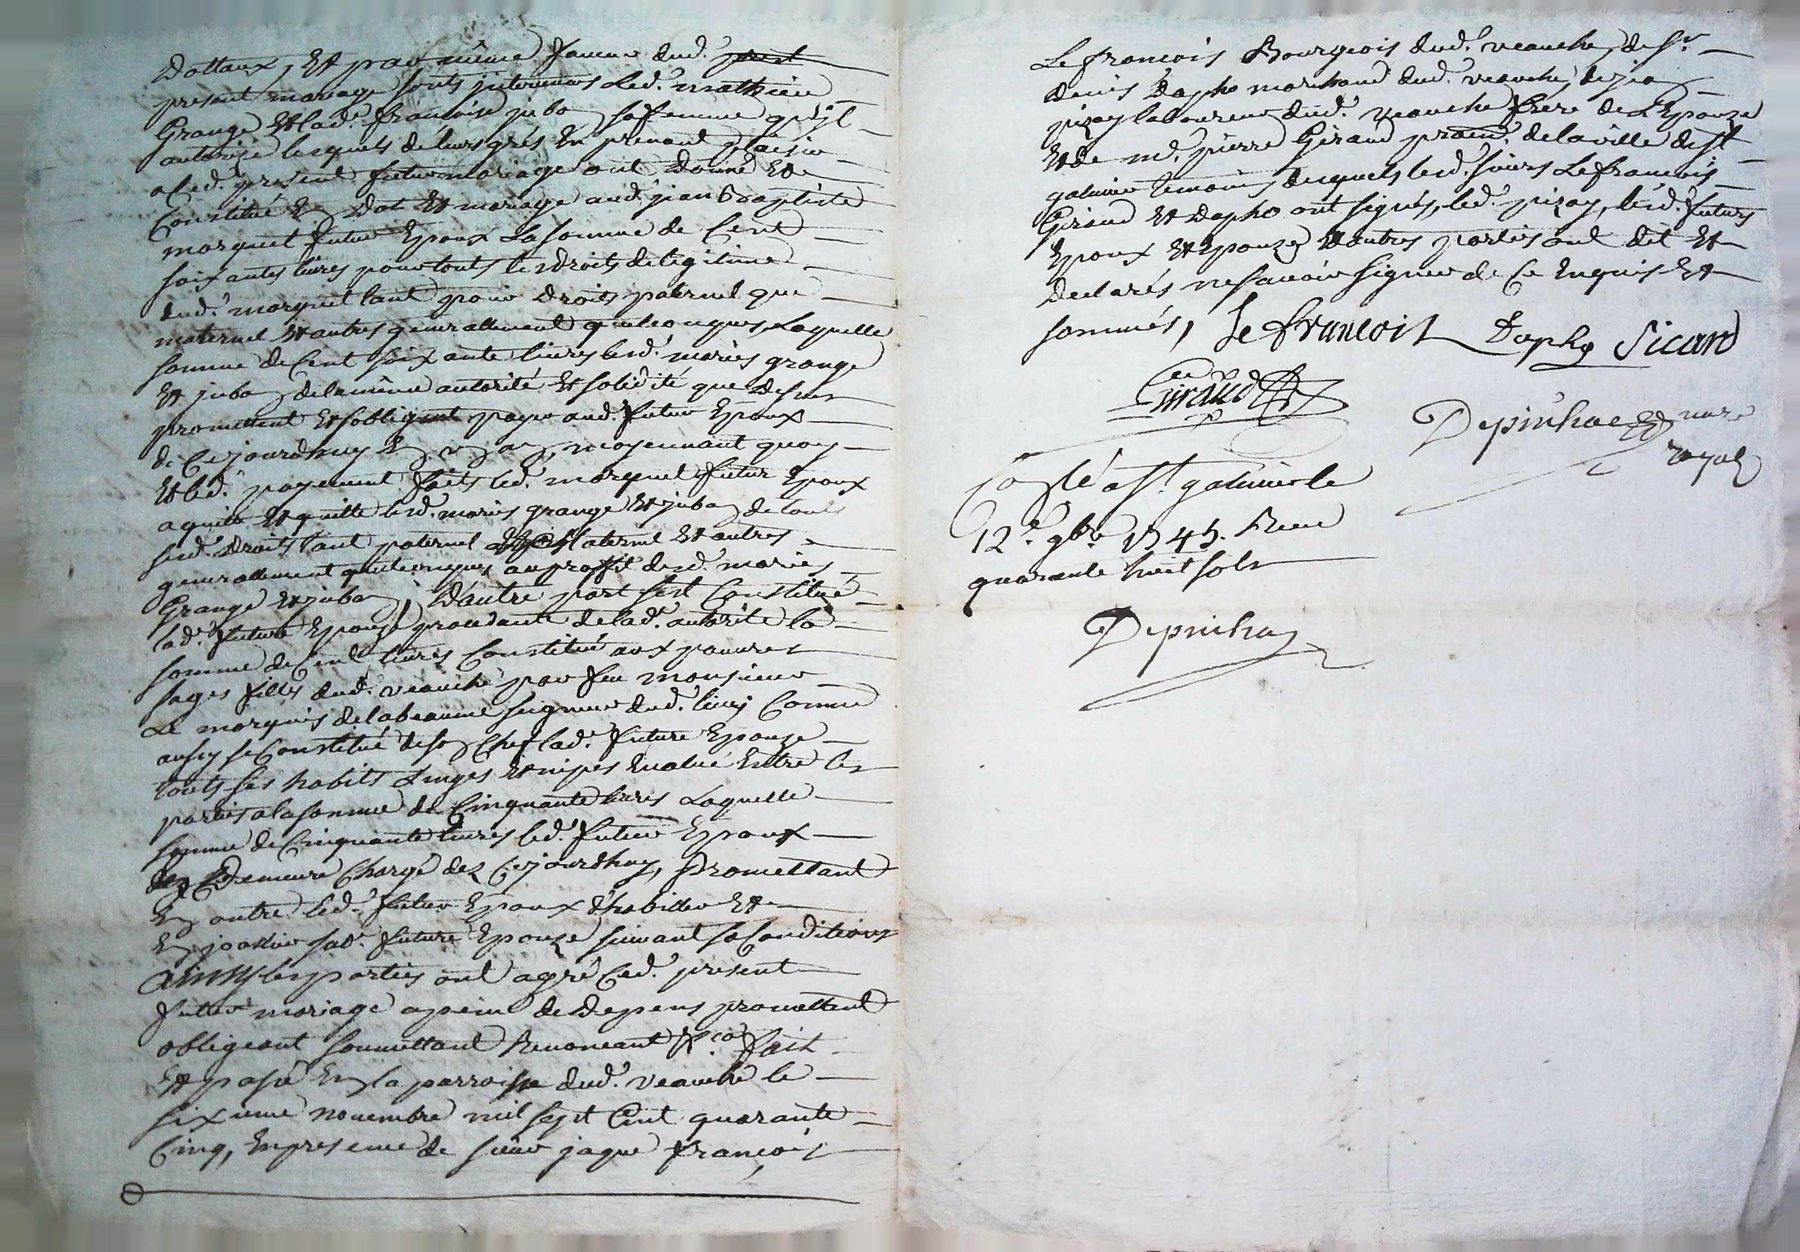 Dottaux, Et par même faveur dud. prest
present mariage sonts intervenus led. mathieu
Grange Et lad. francoise juba sa femme qu'jl
autorize lesquels de leurs grés En prenant plaisir
a Ced. present futur mariage ont Donné Et
Constitué En Dot Et mariage aud. jean baptiste
morquet futur Epoux La somme de Cent
soixantes livres pour touts les droits de legitime
dud. morquet tant pour Droits paternel que
maternel Et autres generallement quelconques, Laquelle
somme de Cent soixante livres lesd. mariés grange
Et juban de la même autorité Et solidité que dessus
promettent Et sobligent payer aud. futur Epoux
de Cejourdhuy En un an, moyennant quoy
Et led. payement faits led. morquet futur Epoux
a quitté Et quitte lesd. mariés grange Et juban de touts
sesd. Droits tant paternel maternel Et autres
generallement quelconques au proffit desd. mariés
Grange Et juban, D'autre part sest Constitué
lad. future Epouze procedante de lad. autorité la
somme de Cent livres Constitué aux pauvres
sages filles dud. veauche par feu monsieur
Le morquis de labeaume seigneur dud. lieu, Comme
aussy se Constitué de son Chef lad. future Epouze
touts ses habits Linges Et nipes Evalué Entre les
parties a la somme de Cinquante livres Laquelle
somme de Cinquante livres led. futur Epoux
Demeure Chargé dez Cejourdhuy, Promettant
En outre led. futur Epoux d'habiller Et
En joailler sad. future Epouze suivant sa Condition
ainsy les parties ont agréé Ced. present
futur mariage a peine de Depens promettent
obligeant soumettant Renonceant fait
Et passé En la parroisse dud. veauche le
sixieme novembre mil sept Cent quarante
Cinq, En presence de sieur jaque francois
Lefrancois Bourgeois dud. veauche, de sr.
denis Dapho marchand dud. veauche, de jean
pizay laboureur dud. veauche frere de L'Epouze
Et de me. pierre Giraud de la ville de st.
galmier temoins desquels lesd. sieurs Lefrancois
Giraud Et Dapho ont signés, led. pizay, lesd. futurs
Epoux Et Epouze, Et autres parties ont dit Et
declarés ne savoir signer de Ce Enquis Et
sommés, Lefrancois Dapho Sicard
Giraud
Depinhac nore
royal
Conlé a st. galmier le
12e. 9bre 1745. Recu
quarante huit sols
Depinhac